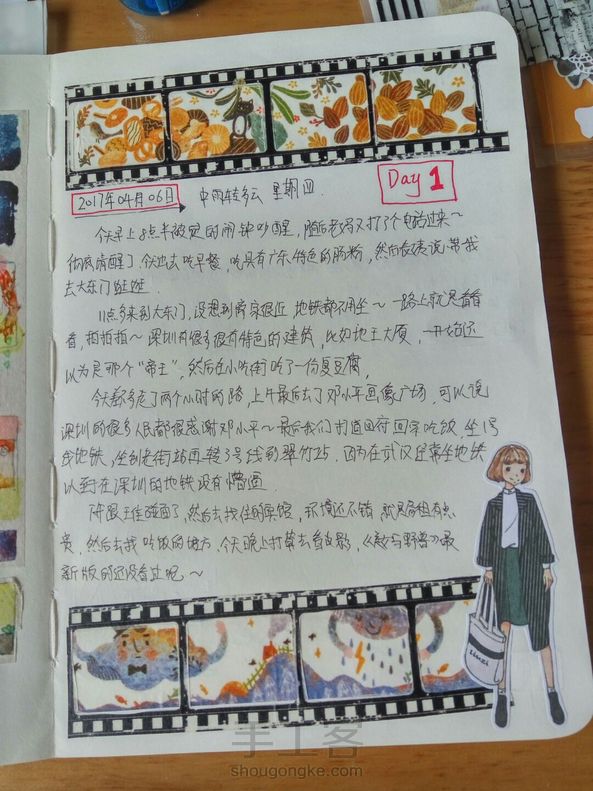 2017年04月06日 中雨转多云 星期四 Day 1
今天早上8点半被灵的闹钟吵醒，随后老妈又打了个电话过来～
彻底清醒了.今天出去吃早餐，吃具有广东特色的肠粉，然后表姨说带我
去大东门逛逛.
11点多来到大东门，没想到离家很近 地铁都不用坐～ 一路上就是看看
看，拍拍拍～ 深圳有很多很有特色的建筑，比如地王大厦，一开始还
以为是那个“帝王”，然后在小吃街吃了一份臭豆腐，
今天都多走了两个小时的路，上午最后去了邓小平画像广场，可以说
深圳的很多人民都很感谢邓小平～ 最后我们打道回府回家吃饭，坐1号
线地铁，坐到老街站再转3号线到翠竹站.因为在武汉经常坐地铁
所以在深圳的地铁没有懵逼.
碰面了，然后去找住的宾馆，环境还不错，就是房租有点
贵，然后去找吃饭的地方.今天晚上打算去看电影，《美女与野兽》最
新版的还没看过呢～
手工客
shougongke.com